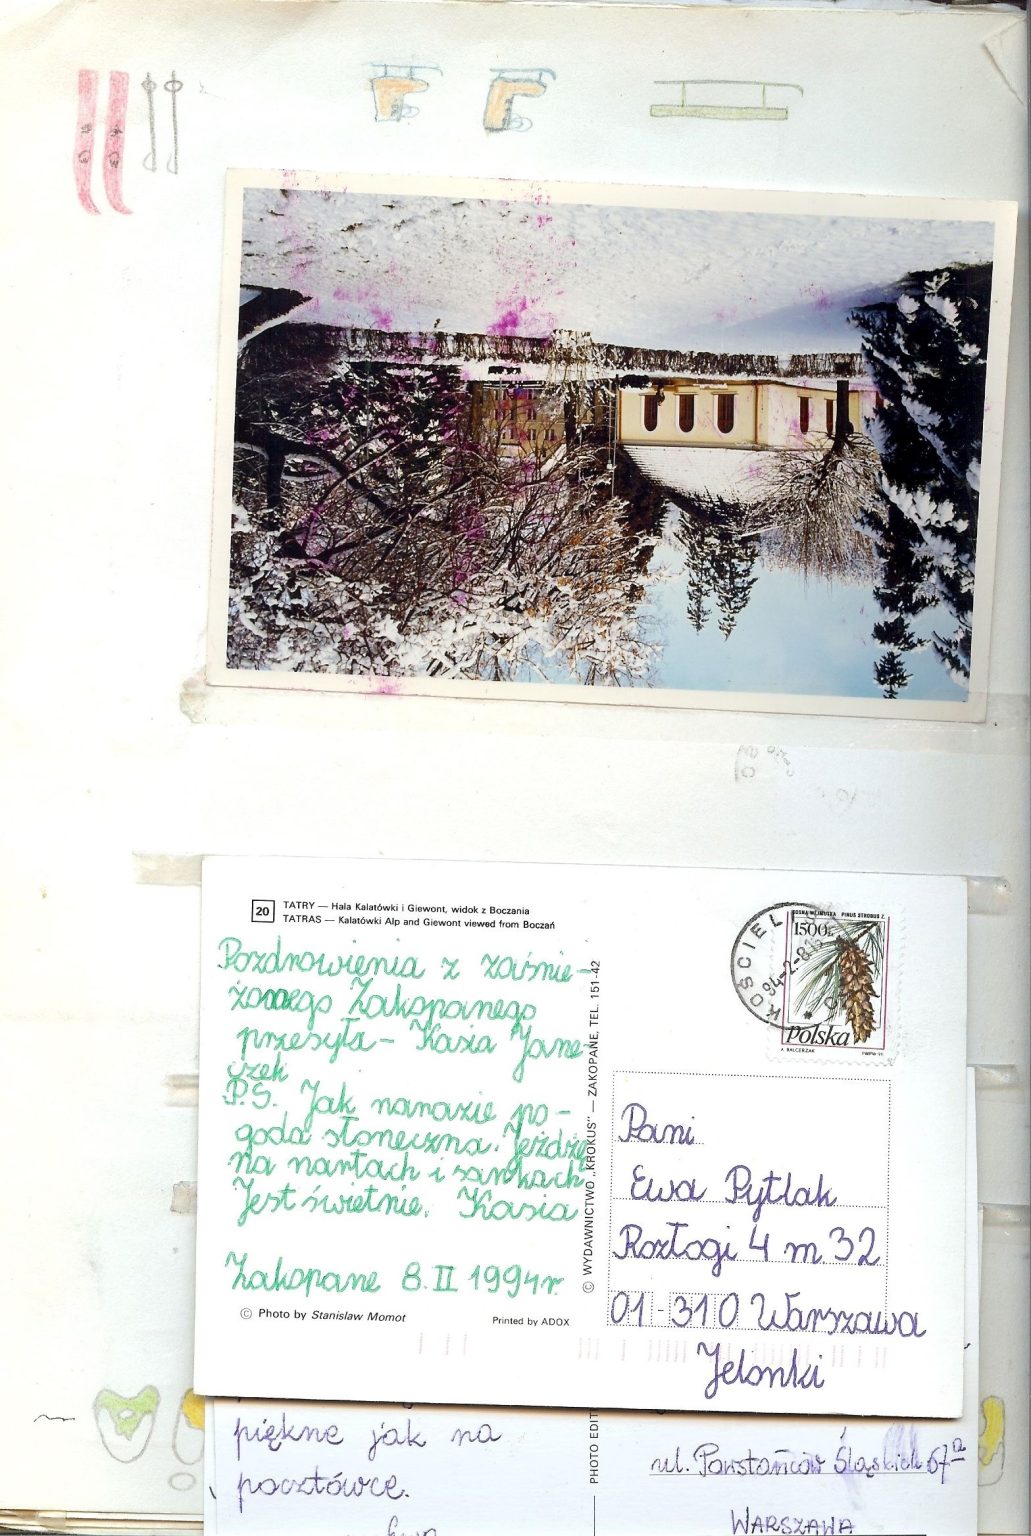 20
TATRY — Hala Kalatówki i Giewont, widok z Boczania
TATRAS — Kalatówki Alp and Giewont viewed from Boczań
Pozdrowienia z zaśnie-
żonego Zakopanego
przesyła - Kasia Jane-
czek
P.S. Jak narazie po-
goda słoneczna. Jeżdżę
na nartach i sankach
Jest świetnie. Kasia
Zakopane 8.II 1994r.
© Photo by Stanisław Momot
Printed by ADOX
© WYDAWNICTWO „KROKUS" — ZAKOPANE, TEL. 151-42
KOŚCIEL
94-2-8
SOSNA WEJMUTKA PINUS STROBUS L.
1500zł
polska
A. BALCERZAK
PWPW
Pani
Ewa Pytlak
Rozłogi 4 m. 32
01-310 Warszawa
Jelonki
piękne jak na
pocztówce.
Ewa
PHOTO EDIT
ul. Powstańców Śląskich 67a
WARSZAWA